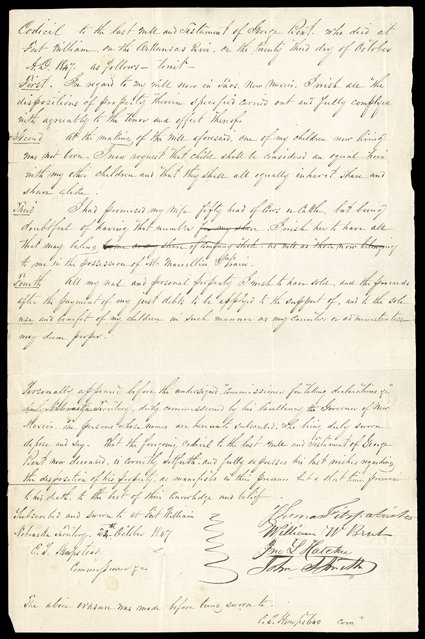 Codicil to the last will and Testament of George Bent. who died at
Fort William on the Arkansas River, on the twenty third day of October
A.D. 1847. as follows - towit -
First. In regard to my will now in Taos, New Mexico, I wish all the
dispositions of property therein specified carried out and fully complied
with agreeably to the tenor and effect thereof.
Second at the making of the will aforesaid, one of my children now living
was not born. I now request that child shall be considered an equal heir
with my other children and that they shall all equally inherit share and
share alike.
Third I had promised my wife fifty head of Cows or Cattle, but being
doubtful of having that number I wish her to have all
that may belong share of company stock as well as those now
to me in the possession of Mr. Marcellin
Fourth All my real and personal property I wish to have sold, and the proceeds
after the payment of my just debts to be applied to the support of, and to the sole
use and benefit of my children in such manner as my executors or administrators
may deem proper.
Personally appeared before the undersigned Commissioner for taking declarations
Nebraska Territory, duly commissioned by his Excellency, the Governor of New
Mexico. The persons whose names are hereunto subscribed, who being duly sworn
depose and say. That the foregoing codicil to the last will and Testament of George
Bent now deceased, is correctly set forth, and fully expresses his last wishes regarding
the disposition of his property, as manifested in their presence but a short time previous
to his death, to the best of their knowledge and belief.
Subscribed and sworn to at Fort William
Nebraska Territory. October 1847
Thomas Fitzpatrick
William W Bent
Jno L Hatcher
John Smith
Commissioner
The above erasure was made before being sworn to.